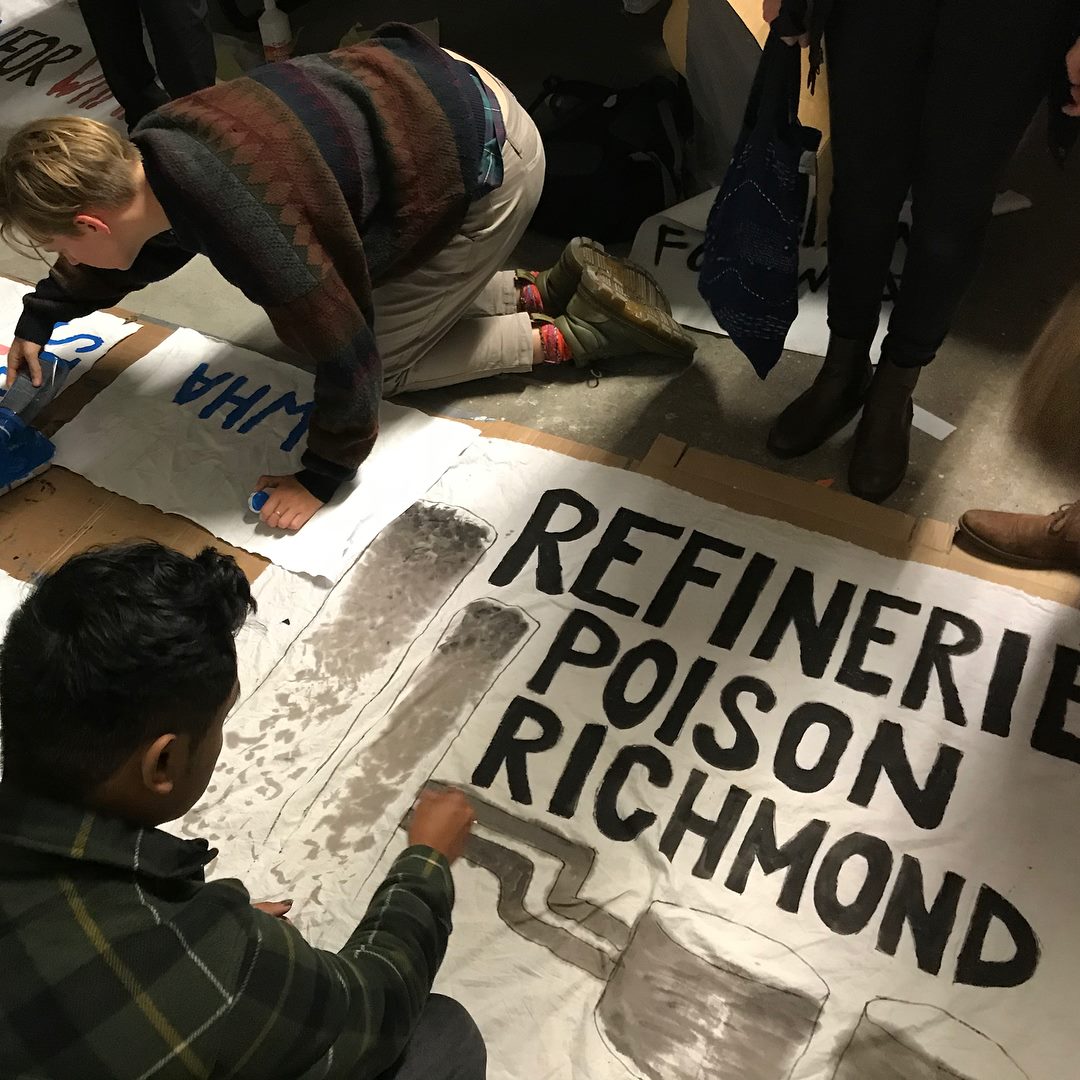 FOR
WHA
REFINERIE
POISON
RICHMOND